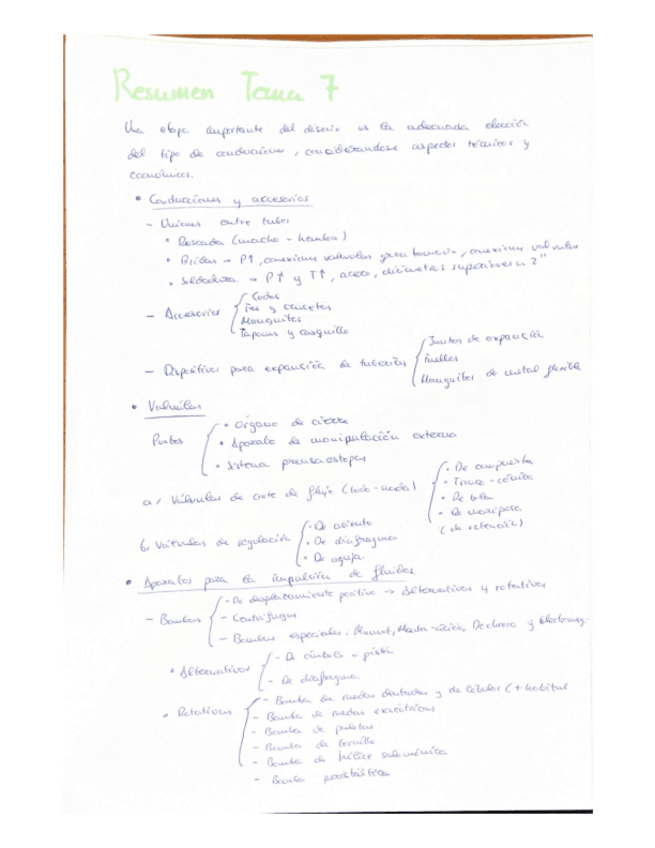 Resumen Tema 7
Una etapa importante del diseño es la adecuada elección
del tipo de conducciones, considerándose aspectos técnicos y
económicos.
• Conducciones y accesorios
- Uniones entre tubos
• Roscada (macho - hembra)
• Bridas → P↑, conexiones válvulas gran tamaño, conexiones válvulas
• Soldadura → P↑ y T↑, acero, diámetros superiores a 2"
- Accesorios
- Codos
Tes y crucetas
Manguitos
Tapones y casquillo
- Dispositivos para expansión de tuberías
Juntas de expansión
Fuelles
Manguitos de metal flexible
• Válvulas
Partes
• Órgano de cierre
• Aparato de manipulación externa
• Sistema prensaestopas
a) Válvulas de corte de flujo (todo-nada)
- De compuerta
- Tronco-cónica
- De bola
- De mariposa
(de retención)
b) Válvulas de regulación
- De asiento
• De diafragma
• De aguja.
• Aparatos para la impulsión de fluidos
- Bombas
- De desplazamiento positivo → Alternativas y rotativas
- Centrífugas
- Bombas especiales:
• Alternativas
- De émbolo o pistón
- De diafragma.
• Rotativas
- Bomba de ruedas dentadas y de lóbulos (+ habitual
- Bomba de ruedas excéntricas
- Bomba de paletas
- Bomba de tornillo
- Bomba de hélice salomónica
- Bomba peristáltica